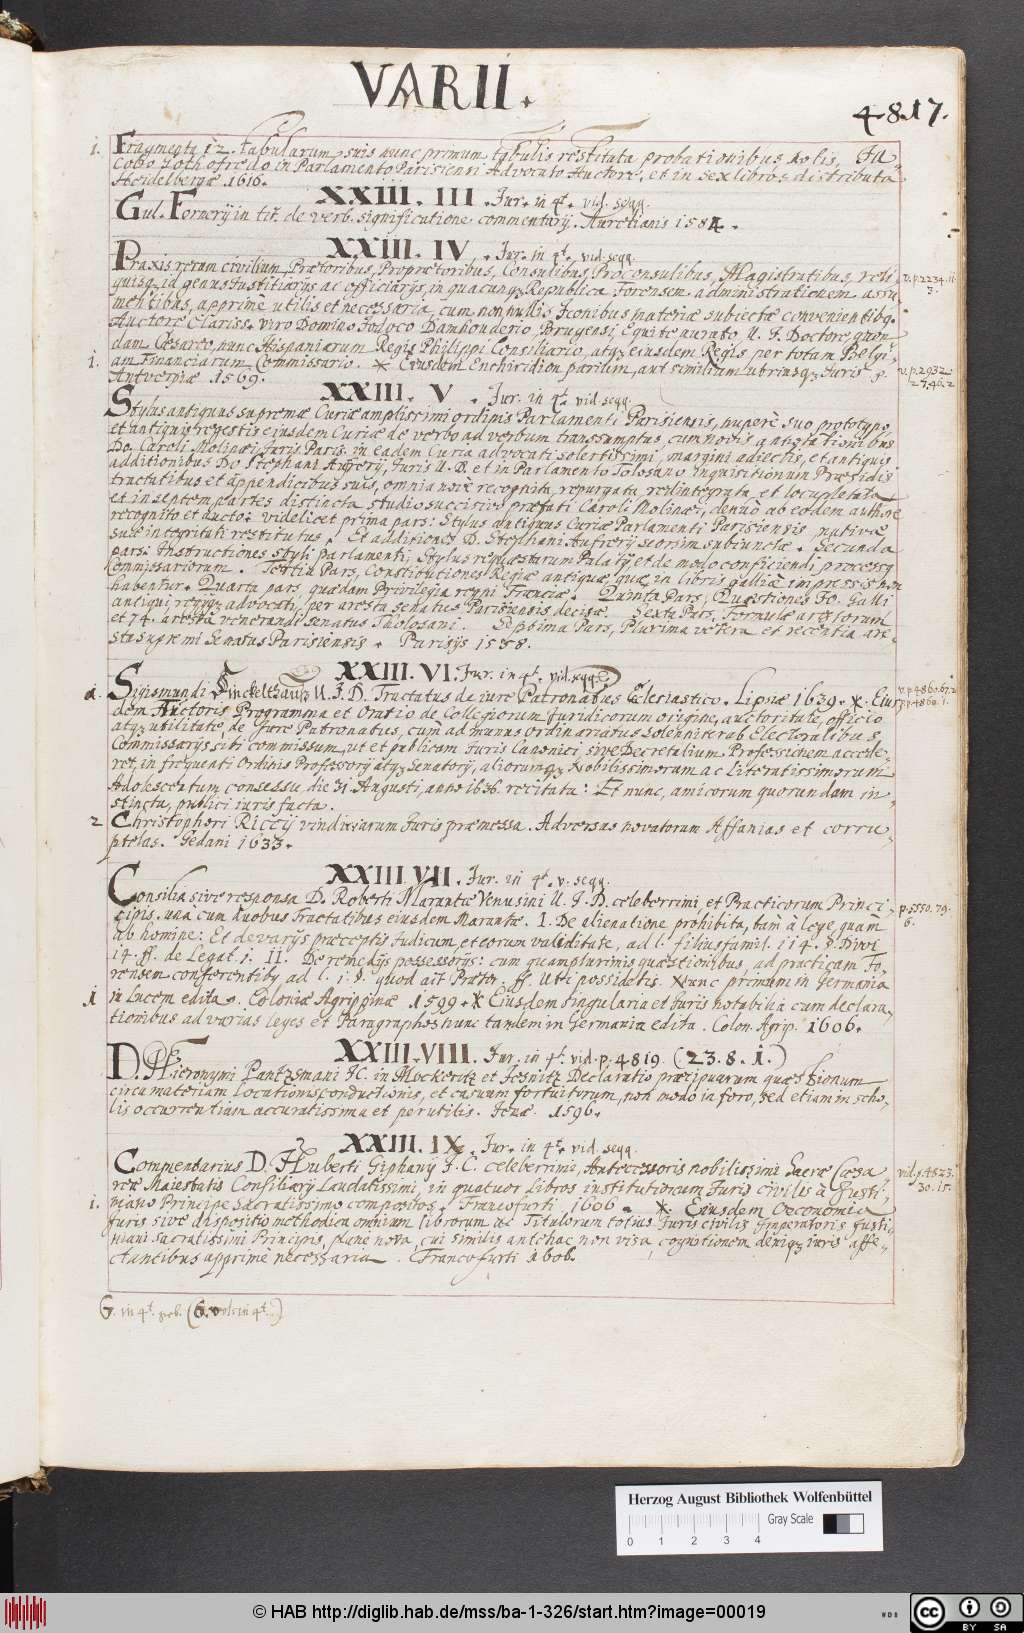 VARII.
4817.
1. Fragmenta 12. tabularum, suis nunc primum tabulis restituta probationibus, notis, Ja-
cobo Gothofredo in Parlamento Parisiensi Advocato Auctore, et in sex libros distributa
Heidelbergæ 1616.
XXIII. III. Jur. in 4t. vid. seqq.
Gul. Fornerij in tit. de verb. significatione commentarij. Aurelianis 1584.
XXIII. IV. Jur. in 4t. vid. seqq.
Praxis rerum civilium, Prætoribus, Proprætoribus, Consulibus, Proconsulibus, Magistratibus, reli-
quisq; id genus Justitiarijs ac officiarijs, in quacunq; Republica Forensem administrationem assu-
mentibus, apprimè utilis et necessaria, cum nonnullis Iconibus materiæ subiectæ convenientibq.
Auctore Clariss. viro Domino Jodoco Damhouderio, Brugensi, Equite aurato, U. J. Doctore, quon-
dam Cesareo, nunc Hispaniarum Regis Philippi Consiliario, atq; eiusdem Regis per totam Belgi-
1. am Financiarum Commissario. * Eiusdem Enchiridion parilium, aut similium utriusq; Juris
Antverpiæ 1569.
v. p. 2234. 11.
3.
v. p. 2932.
27. 46. 2
XXIII. V. Jur. in 4t. vid. seqq.
Stylus antiquus supremæ Curiæ amplissimi ordinis Parlamenti Parisiensis, nuperè suo prototypo,
et antiquis regestis eiusdem Curiæ de verbo ad verbum transsumptus, cum novis annotationibus
Do. Caroli Molinæi, Juris Paris. in eadem Curia advocati solertissimi, margini adiectis, et antiquis
additionibus Do Stephani Aufrery, Juris U. D. et in Parlamento Tolosano Inquisitionum Præsidis
tractatibus et appendicibus suis, omnia novè recognita, repurgata, redintegrata, et locupletata
et in septem partes distincta studio succisivo præfati Caroli Molinæi, denuò ab eodem authore
recognito et aucto: videlicet prima pars: Stylus antiquus Curiæ Parlamenti Parisiensis, nativæ
suæ integritati restitutus. Et additiones D. Stephani Aufrerij seorsim subiunctæ. Secunda
pars: Instructiones styli parlamenti, Stylus requæstarum Palatij et de modo conficiendi processq
Commissariorum. Tertia Pars, Constitutiones Regiæ antiquæ, quæ in libris galliæ impressis non
habentur. Quarta pars, quædam Privilegia regni Franciæ. Quinta Pars, Quæstiones Jo. Galli
antiqui regijq; advocati, per aresta senatus Parisiensis decisæ. Sexta Pars, Formulæ
et 74. aresta venerandi senatus Tholosani. Septima Pars, Plurima vetera et recentia are-
sta supremi Senatus Parisiensis. Parisijs 1558.
XXIII. VI. Jur. in 4t. vid. seqq.
1. Sigismundi Finckelthaus U. J. D. Tractatus de iure Patronatus Ecclesiastico. Lipsiæ 1639. * Eius-
dem Auctoris Programma et Oratio de Collegiorum Juridicorum origine, auctoritate, officio
atq; utilitate, de Jure Patronatus, cum ad munus ordinariatus solenniter ab Electoralibus
Commissarijs sibi commissum, ut et publicam Juris Canonici, sive Decretalium Professionem accede-
ret, in frequenti Ordinis Professorij atq; Senatorij, aliorumq; Nobilissimorum ac Literatissimorum
Adolescentum consessu, die 31. Augusti, anno 1636. recitata: Et nunc, amicorum quorundam in-
stinctu, publici iuris facta.
v. p. 4860. 67. 2
p. 4860. 1.
2 Christophori Riccij vindiciarum Juris præmessa. Adversus novatorum Affanias et corru-
ptelas. Gedani 1633.
XXIII VII. Jur. in 4t. v. seqq.
Consilia sive responsa D. Roberti Marantæ Venusini U. J. D. celeberrimi, et Practicorum Princi-
cipis. una cum duobus Tractatibus eiusdem Marantæ. I. De alienatione prohibita, tam à lege, quam
ab homine: Et de varijs præceptis Judicum, et eorum validitate, ad l. filiusfamil. 114. §. Divi
14. ff. de Legat. 1. II. De remedijs possessorijs: cum quamplurimis quæstionibus, ad practicam Fo-
rensem conferentibq ad l. 1. §. quod ait Prætor. ff. Uti possidetis. Nunc primum in Germania
1 in Lucem edita. Coloniæ Agrippinæ 1599. * Eiusdem singularia et Juris notabilia cum declara-
tionibus ad varias leges et Paragraphos nunc tandem in Germania edita. Colon. Agrip. 1606.
p. 5550. 79.
6.
XXIII. VIII. Jur. in 4t. vid. p. 4819. (23. 8. 1.)
D. Hieronymi Pantzsmani JC. in Mockeritz et Jesnitz Declaratio præcipuarum quæstionum
circa materiam Locationis, conductionis, et casuum fortuitorum, non modo in foro, sed etiam in scho-
lis occurrentiam accuratissima et perutilis. Jenæ. 1596.
XXIII. IX. Jur. in 4t. vid. seqq.
Commentarius D. Huberti Giphanij J. C. celeberrimi, Antecessoris nobilissimi Sacræ Cæsa-
reæ Maiestatis Consiliarij Laudatissimi, in quatuor Libros institutionum Juris civilis à Justi-
1. niano Principe Sacratissimo compositos. Francofurti 1606. * Eiusdem Oeconomia
Juris sive dispositio methodica omnium librorum ac Titulorum totius Juris civilis Imperatoris Justi-
niani Sacratissimi Principis, planè nova, cui similis antehac non visa, cognitionem deniq; iuris affe-
ctantibus apprimè necessaria. Francofurti 1606.
vid. p. 4823.
30. 15.
G. in 4t. (G. vols in 4t.)
Herzog August Bibliothek Wolfenbüttel
Gray Scale
0 1 2 3 4
© HAB http://diglib.hab.de/mss/ba-1-326/start.htm?image=00019
WDB
cc BY SA